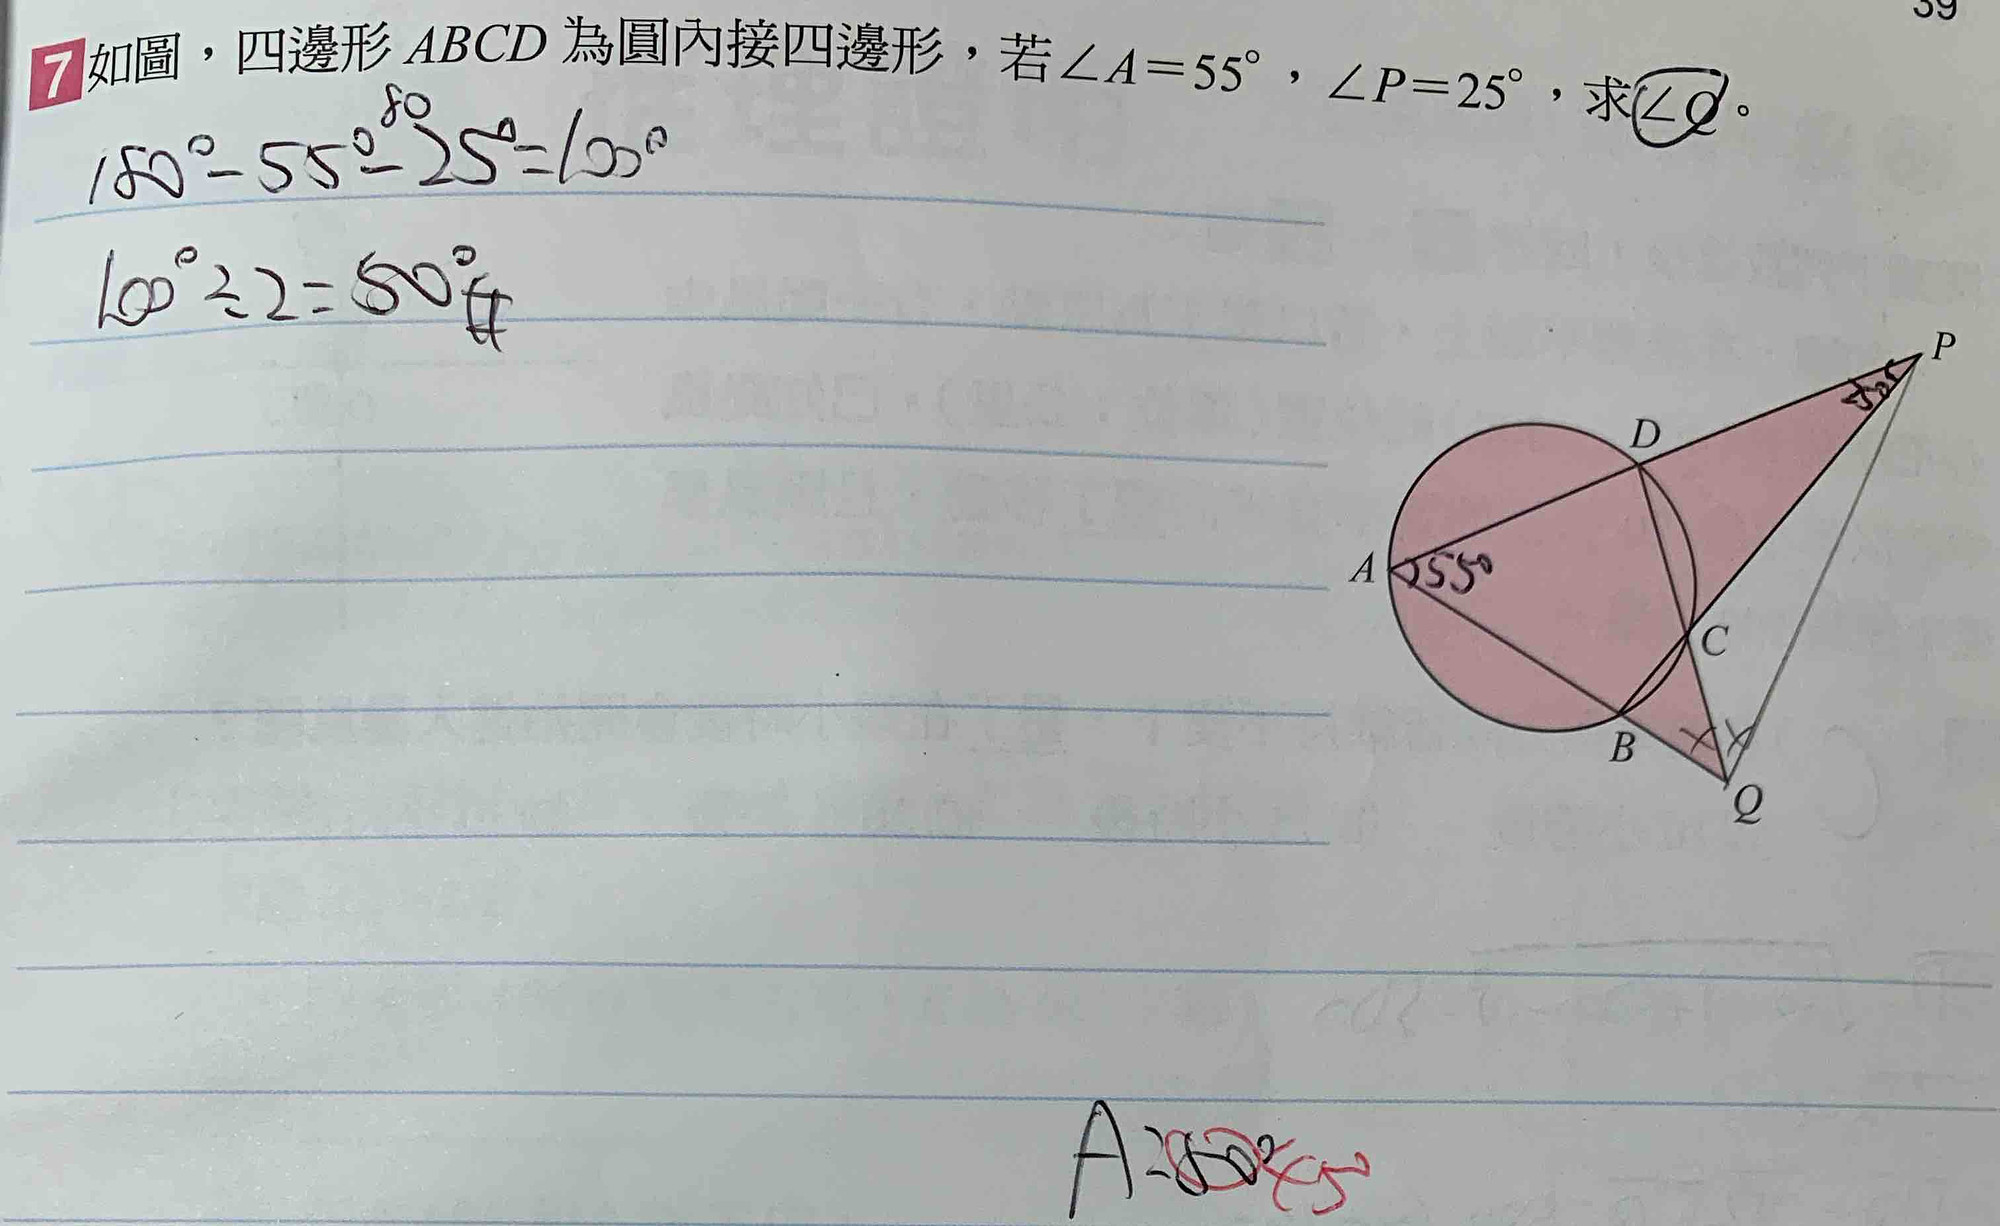 39
7 如圖，四邊形 ABCD 為圓內接四邊形，若∠A＝55°，∠P＝25°，求∠Q。
80
180°-55°-25°=100°
100°÷2=50°#
P
25°
D
A
55°
C
B
Q
A=50° 45°